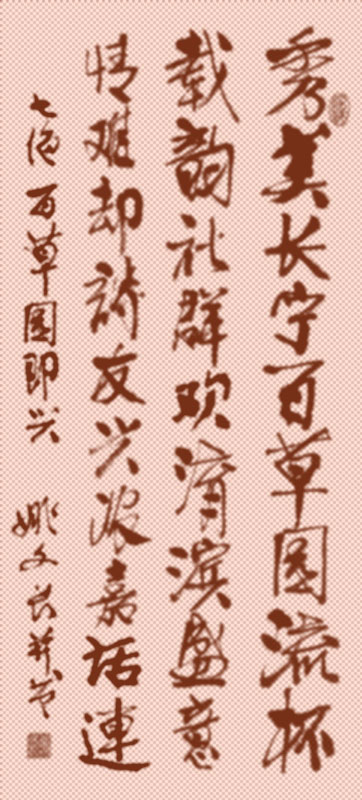 秀美长宁百草园流杯
载韵社群欢淯滨盛意
情难却詩友兴浓嘉话連
七绝 百草園即兴 姚文长并书